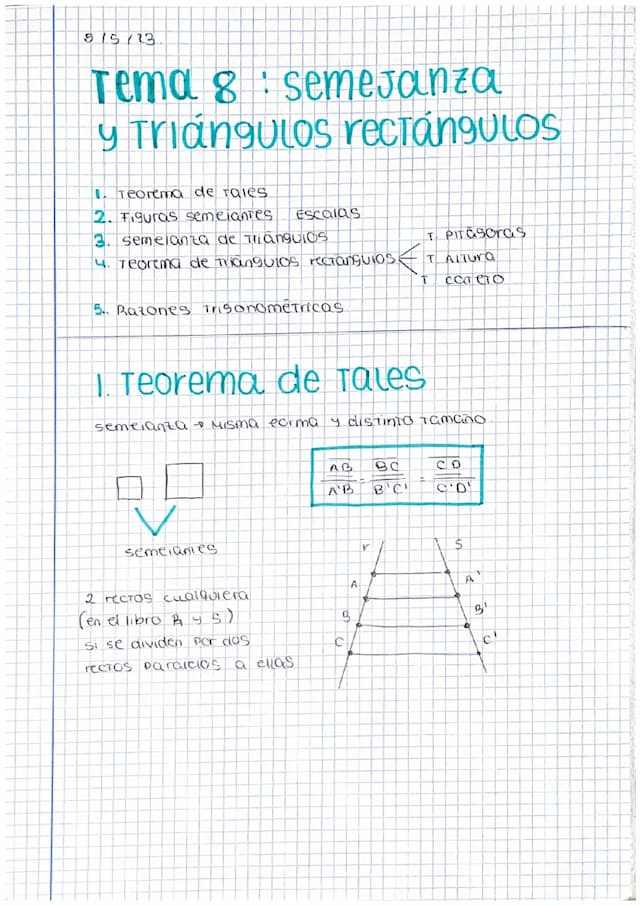 8/5/23
Tema 8: semejanza
y Triángulos rectángulos
1. Teorema de Tales
2. Figuras semejantes. Escalas
3. semejanza de triángulos
4. Teorema de triángulos rectángulos
T. Pitágoras
T. Altura
T cateto
5. Razones trigonométricas
1. Teorema de Tales
semejanza → Misma y distinto tamaño.
AB BC CD
= =
A'B B'C' C'D'
semejantes
2 rectos cualquiera
(en el libro R y S)
si se dividen por dos
rectos paralelos a ellas
r s
A A'
B B'
C C'